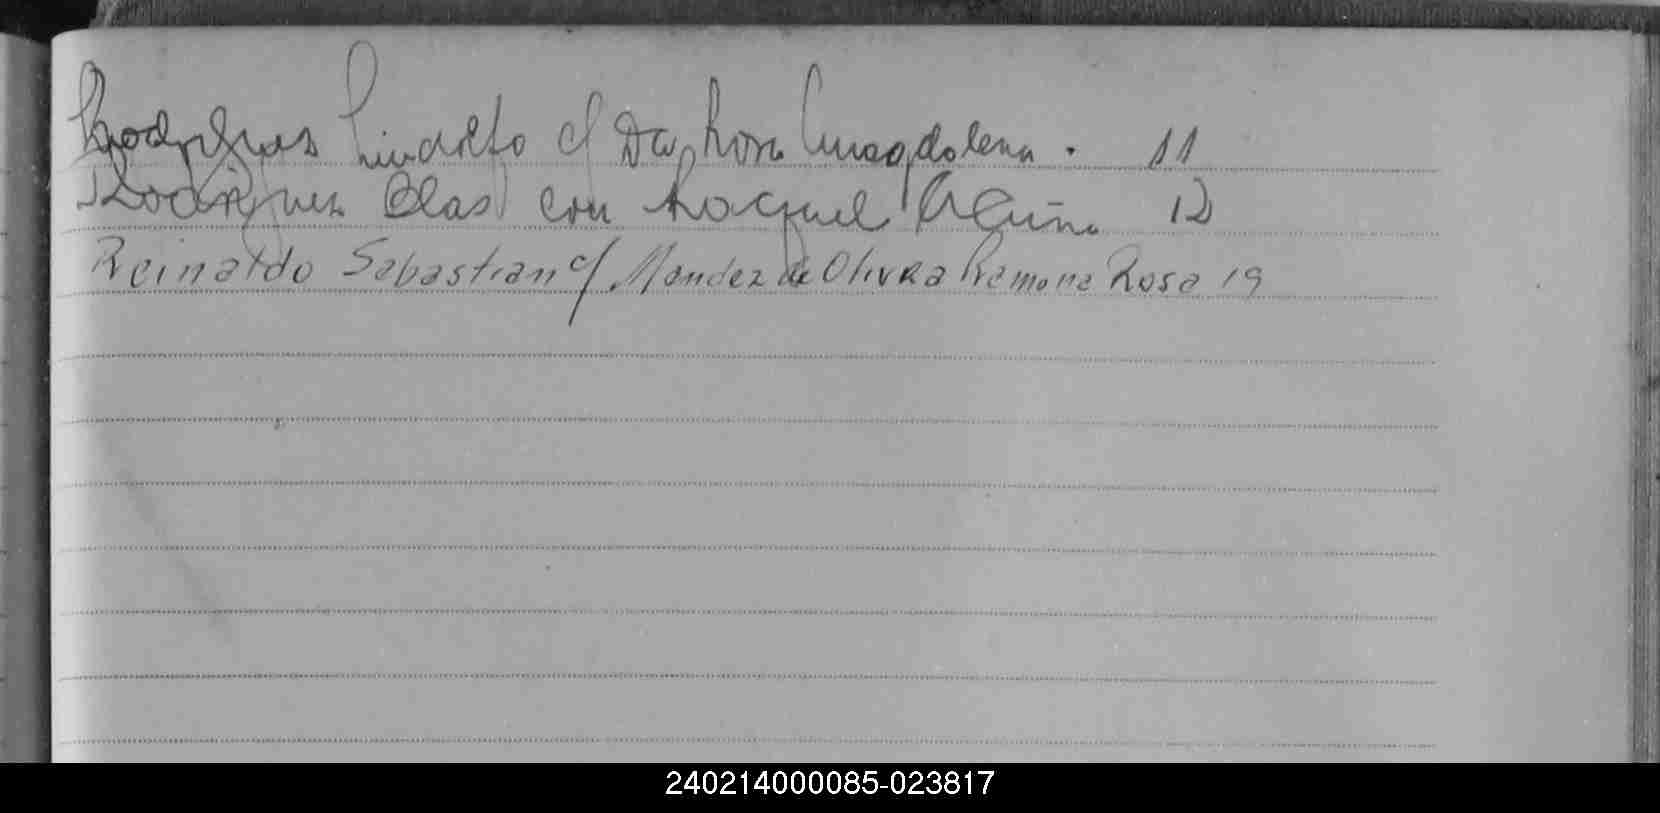 Rodriguez Linarlto c/ Da Rosa Magdalena. 11
Rodriguez Blas con Raquel 12
Reinaldo Sebastian c/ Mendez de Olivra Ramona Rosa 19
240214000085-023817